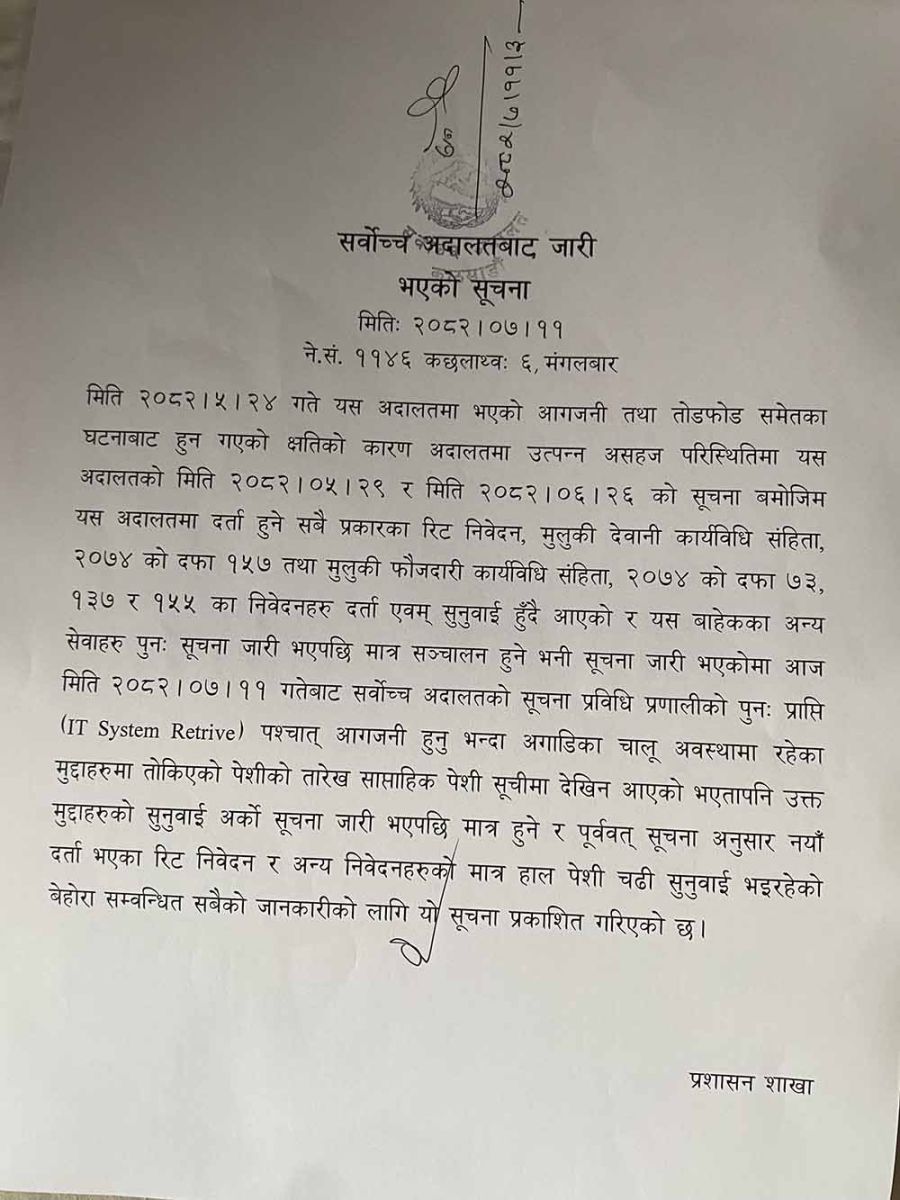 २०८२/७/११/३
सर्वोच्च अदालतबाट जारी
भएको सूचना
मितिः २०८२।०७।११
ने.सं. ११४६ कछलाथ्वः ६, मंगलबार
मिति २०८२।५।२४ गते यस अदालतमा भएको आगजनी तथा तोडफोड समेतका
घटनाबाट हुन गएको क्षतिको कारण अदालतमा उत्पन्न असहज परिस्थितिमा यस
अदालतको मिति २०८२।०५।२९ र मिति २०८२।०६।२६ को सूचना बमोजिम
यस अदालतमा दर्ता हुने सबै प्रकारका रिट निवेदन, मुलुकी देवानी कार्यविधि संहिता,
२०७४ को दफा १५७ तथा मुलुकी फौजदारी कार्यविधि संहिता, २०७४ को दफा ७३,
१३७ र १५५ का निवेदनहरु दर्ता एवम् सुनुवाई हुँदै आएको र यस बाहेकका अन्य
सेवाहरु पुनः सूचना जारी भएपछि मात्र सञ्चालन हुने भनी सूचना जारी भएकोमा आज
मिति २०८२।०७।११ गतेबाट सर्वोच्च अदालतको सूचना प्रविधि प्रणालीको पुनः प्राप्ति
(IT System Retrive) पश्चात् आगजनी हुनु भन्दा अगाडिका चालू अवस्थामा रहेका
मुद्दाहरुमा तोकिएको पेशीको तारेख साप्ताहिक पेशी सूचीमा देखिन आएको भएतापनि उक्त
मुद्दाहरुको सुनुवाई अर्को सूचना जारी भएपछि मात्र हुने र पूर्ववत् सूचना अनुसार नयाँ
दर्ता भएका रिट निवेदन र अन्य निवेदनहरुको मात्र हाल पेशी चढी सुनुवाई भइरहेको
बेहोरा सम्वन्धित सबैको जानकारीको लागि यो सूचना प्रकाशित गरिएको छ।
प्रशासन शाखा